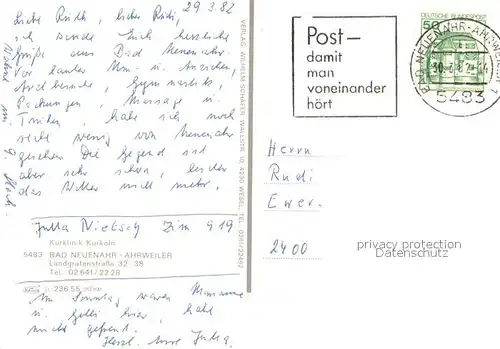 29.3.82
Liebe Ruth, lieber Rudi,
ich sende Euch herzliche
Grüße aus Bad Neuenahr.
Vor lauter An- u. Ausziehen,
Gymnastik,
Packungen, Massage u.
Trinken, habe ich noch
recht wenig von Neuenahr
gesehen. Die Gegend ist
aber sehr schön, leider
das Wetter nicht mehr.
Jutta Nietsch Zim 919
Kurklinik Kurköln
5483 BAD NEUENAHR - AHRWEILER
Landgrafenstraße 32 38
Tel.: 02641/2228
236.55
Am Sonntag waren
u. hier, habe
mich gefreut.
Herzl. Eure Jutta
VERLAG: WILHELM SCHÄFER WALLSTR. 10, 4230 WESEL, TEL. 0281/22462
Post—
damit
man
voneinander
hört
DEUTSCHE BUNDESPOST
50
BAD NEUENAHR-AHRWEILER 1
5483
Herrn
Rudi
Ewer
2400
privacy protection
Datenschutz